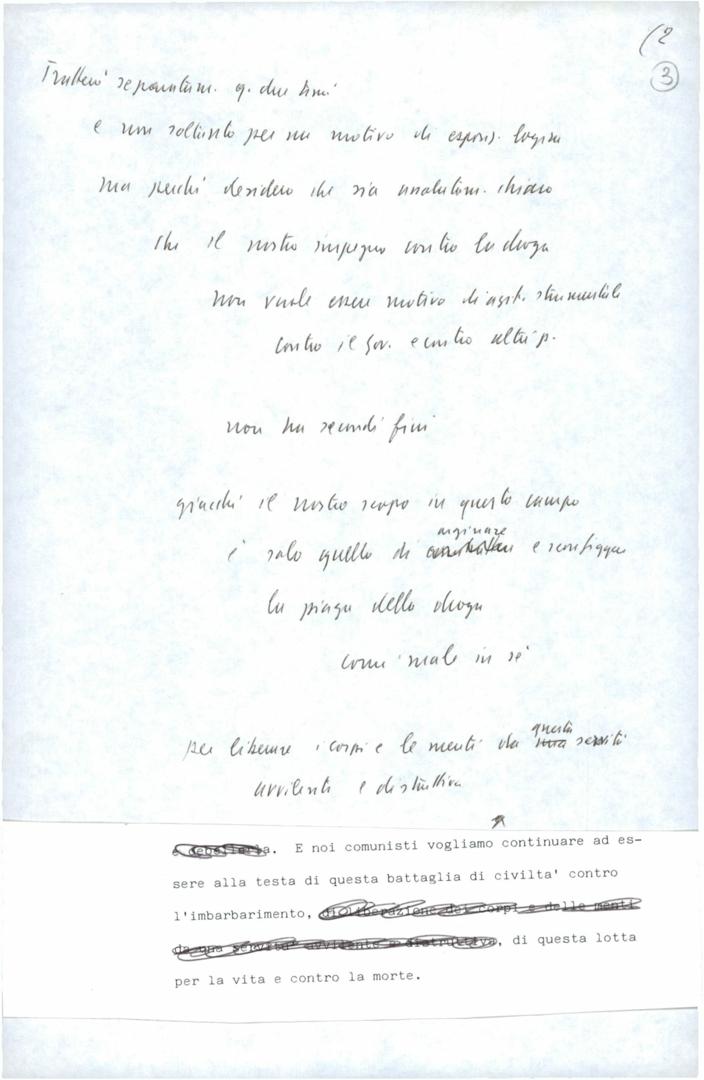 (2
3
Tratterò separatam. q. due temi
e non soltanto per un motivo di esposiz. logica
ma perché desidero che sia assolutam. chiaro
che il nostro impegno contro la droga
non vuole essere motivo di agit. strumentale
contro il gov. e contro altri p.
non ha secondi fini
giacché il nostro scopo in questo campo
arginare
è solo quello di e sconfiggere
la piaga della droga
come male in sé
questa
per liberare i corpi e le menti da una servitù
avvilente e distruttiva
e debellarla. E noi comunisti vogliamo continuare ad es-
sere alla testa di questa battaglia di civilta' contro
l'imbarbarimento, di liberazione dei corpi e delle menti
da una servitu' avvilente e distruttiva, di questa lotta
per la vita e contro la morte.